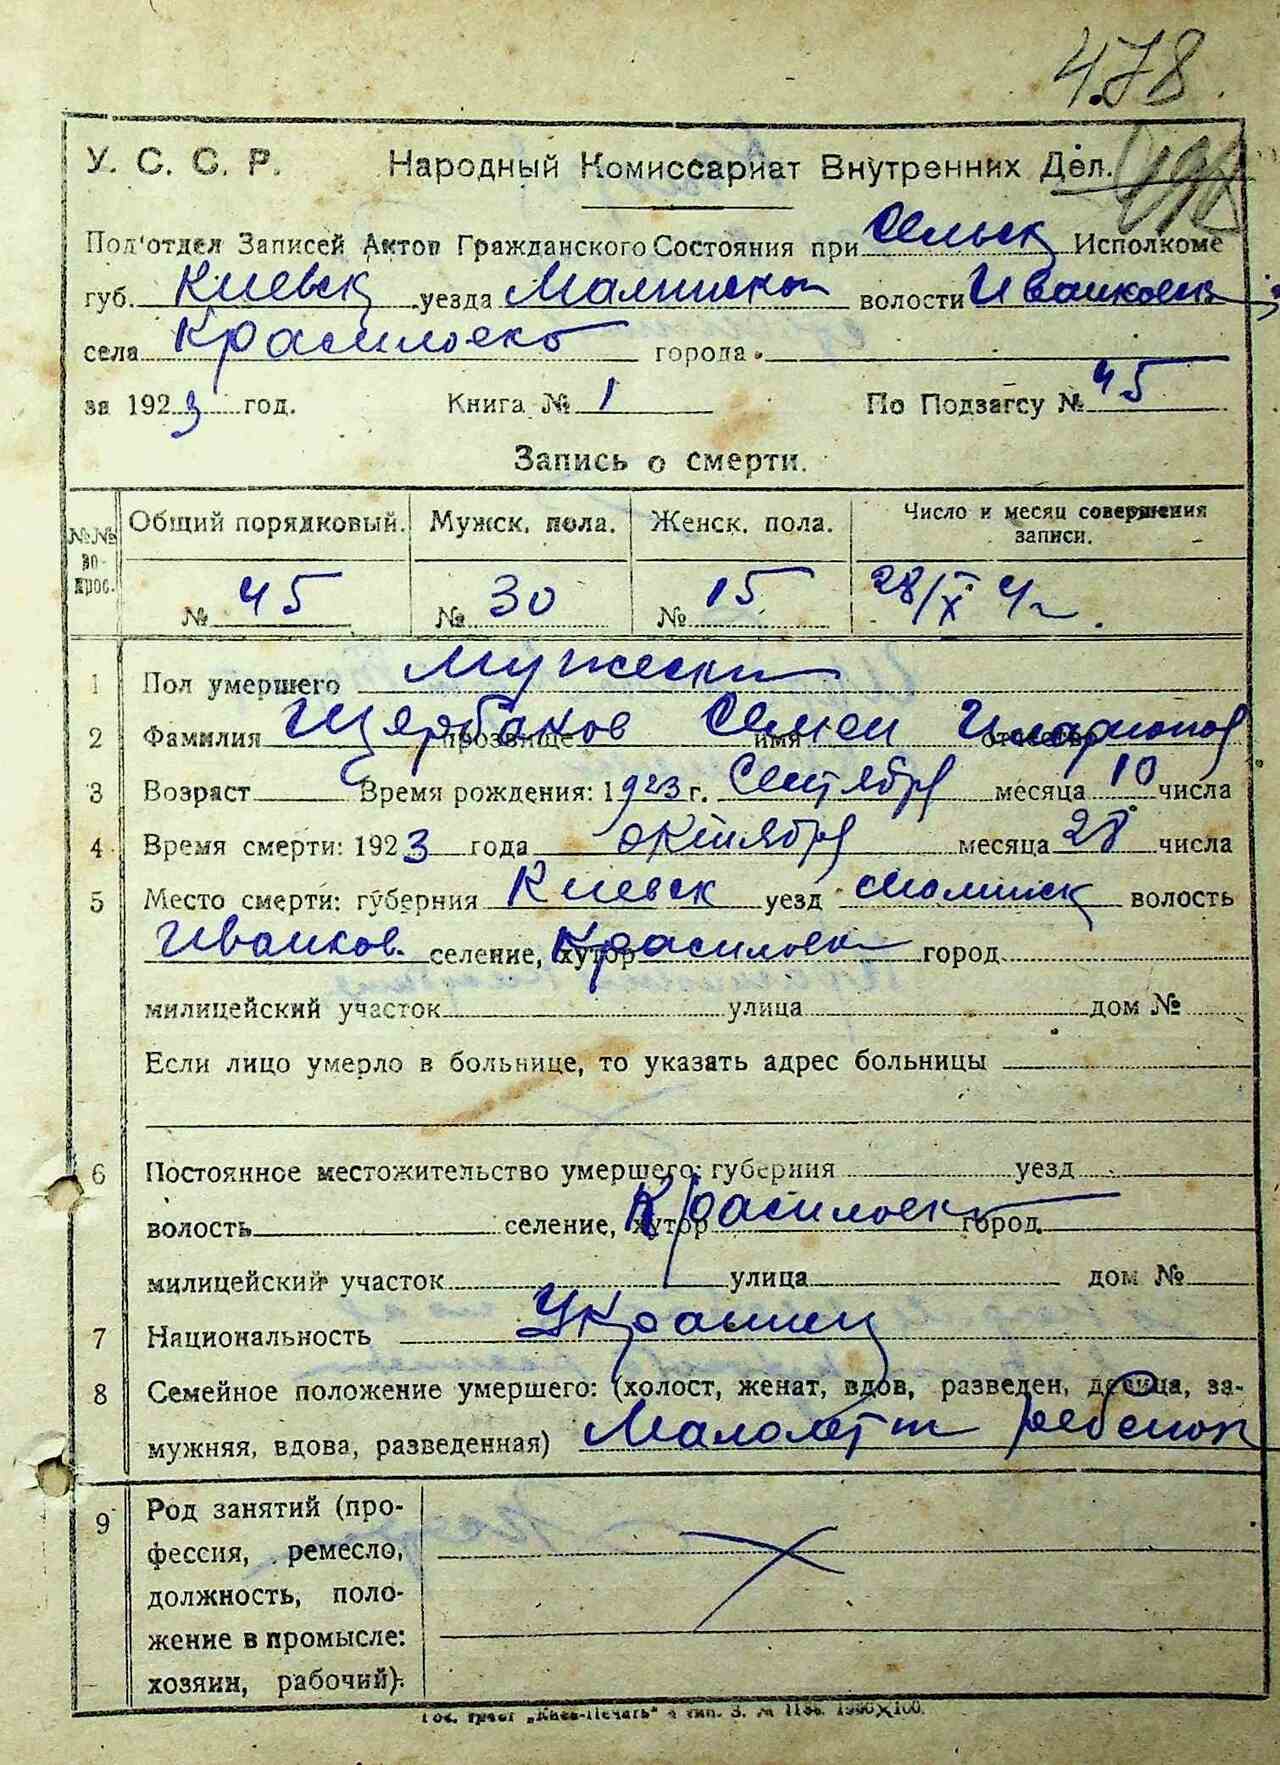 478.
У. С. С. Р. Народный Комиссариат Внутренних Дел.
Под'отдел Записей Актов Гражданского Состояния при Сельск Исполкоме
губ. Киевск уезда Малинском волости Иванковск
села Красиловко города
за 1923 год. Книга № 1 По Подзагсу № 45
Запись о смерти.
№№ во-прос. Общий порядковый. Мужск. пола. Женск. пола. Число и месяц совершения записи.
№ 45 № 30 № 15 28/X
1 Пол умершего Мужески
2 Фамилия прозвище Щербаков имя Семен отчество Иларионов
3 Возраст Время рождения: 1923 г. Сентября месяца 10 числа
4 Время смерти: 1923 года октября месяца 28 числа
5 Место смерти: губерния Киевск уезд Малинск волость
Иванков. селение, хутор Красиловка город
милицейский участок улица дом №
Если лицо умерло в больнице, то указать адрес больницы
6 Постоянное местожительство умершего: губерния уезд
волость селение, хутор Красиловко город
милицейский участок улица дом №
7 Национальность Украинец
8 Семейное положение умершего: (холост, женат, вдов, разведен, девица, за-
мужняя, вдова, разведенная) Малолетн ребенок
9 Род занятий (про-
фессия, ремесло,
должность, поло-
жение в промысле:
хозяин, рабочий).
Гос. трест „Киев-Печать“ 4 тип. З. № 1136.